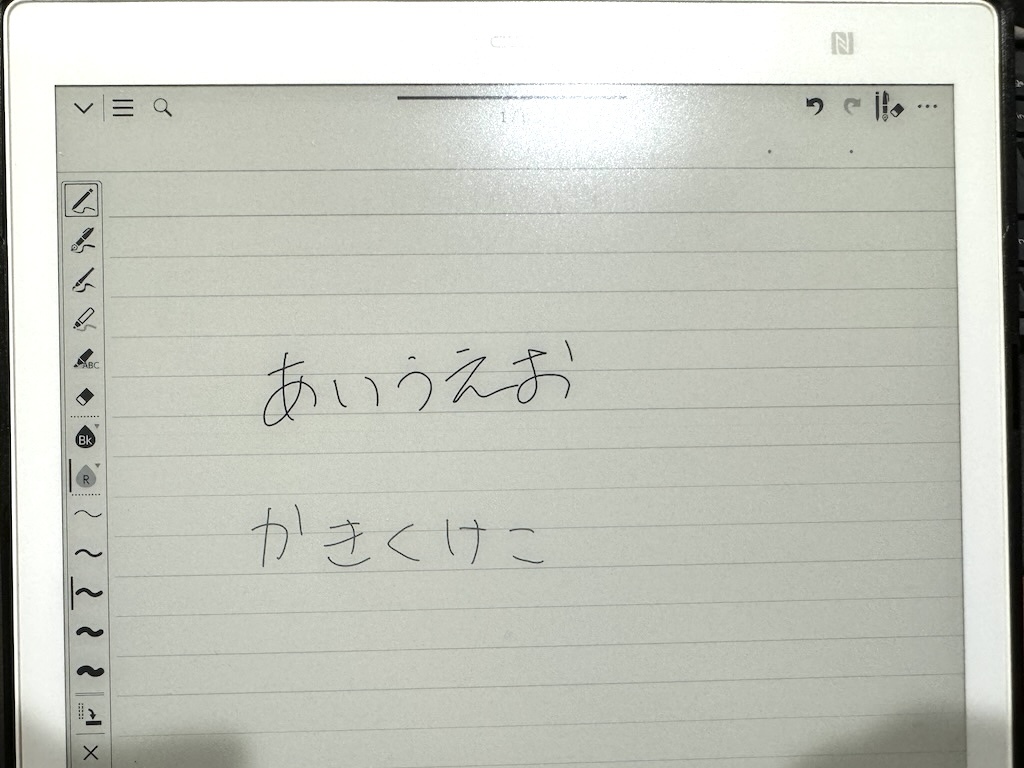 1/1
ABC
Bk
R
あいうえお
かきくけこ